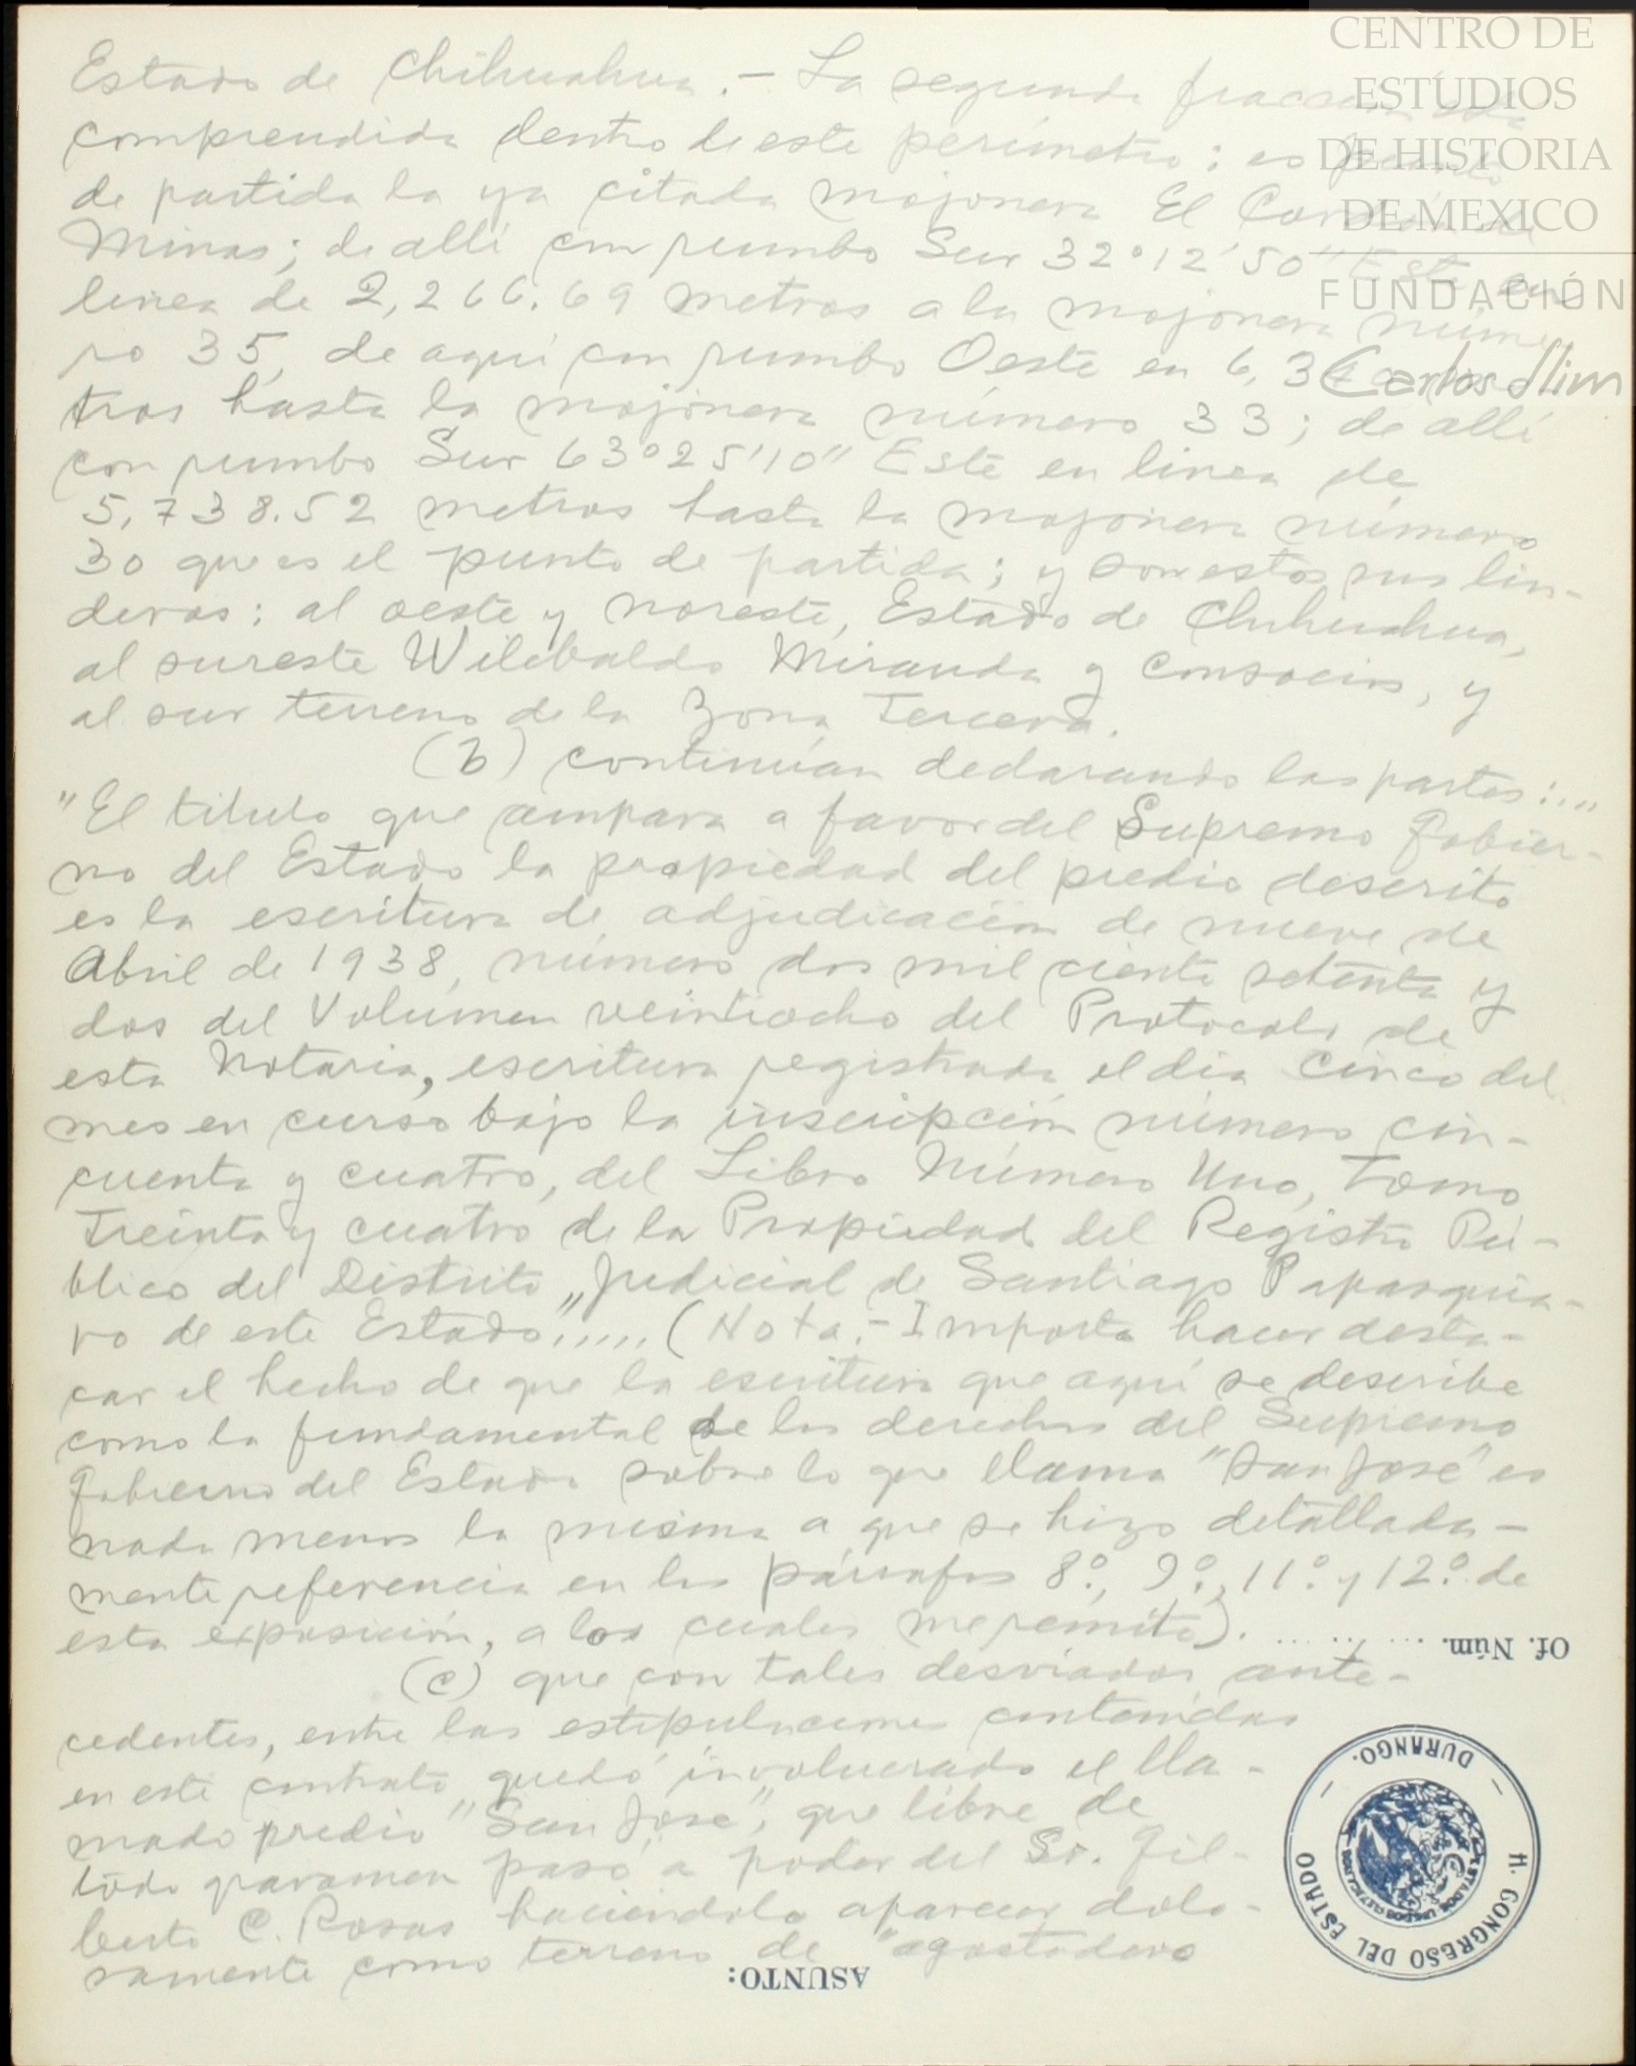 CENTRO DE
ESTUDIOS
DE HISTORIA
DE MEXICO
FUNDACIÓN
Carlos Slim
Estado de Chihuahua.- La segunda fracción está
comprendida dentro de este perímetro: es punto
de partida la ya citada mojonera El Cordón de
Minas; de allí con rumbo Sur 32°12'50" Este en
linea de 2,266.69 metros a la mojonera núme
ro 35, de aquí con rumbo Oeste en 6,34
tros hasta la mojonera número 33; de allí
con rumbo Sur 63°25'10" Este en linea de
5,738.52 metros hasta la mojonera número
30 que es el punto de partida; y son estos sus lin-
deros: al oeste y noreste, Estado de Chihuahua,
al sureste Wilebaldo Miranda y Consocios, y
al sur terreno de la Zona Tercera.
(b) continúan declarando las partes:...
"El titulo que ampara a favor del Supremo Gobier-
no del Estado la propiedad del predio descrito
es la escritura de adjudicación de nueve de
Abril de 1938, número dos mil ciento setenta y
dos del Volúmen veintiocho del Protocolo de
esta Notaria, escritura registrada el dia cinco del
mes en curso bajo la inscripción número cin-
cuenta y cuatro, del Libro Número Uno, Tomo
Treinta y cuatro de la Propiedad del Registro Pú-
blico del Distrito Judicial de Santiago Papasquia-
ro de este Estado"..... (Nota.- Importa hacer desta-
car el hecho de que la escritura que aquí se describe
como la fundamental de los derechos del Supremo
Gobierno del Estado sobre lo que llama "San José" es
nada menos la misma a que se hizo detallada-
mente referencia en los párrafos 8º, 9º, 11º y 12º de
esta exposición, a los cuales me remito).
Of. Núm. ............
(c) que con tales desviados ante-
cedentes, entre las estipulaciones contenidas
en este contrato quedó involucrado el lla-
mado predio "San José", que libre de
todo gravamen pasó a poder del Sr. Gil-
berto C. Rosas haciendolo aparecer dolo-
samente como terreno de "agostadero
ASUNTO:
H. CONGRESO DEL ESTADO
DURANGO.
ESTADOS UNIDOS MEXICANOS